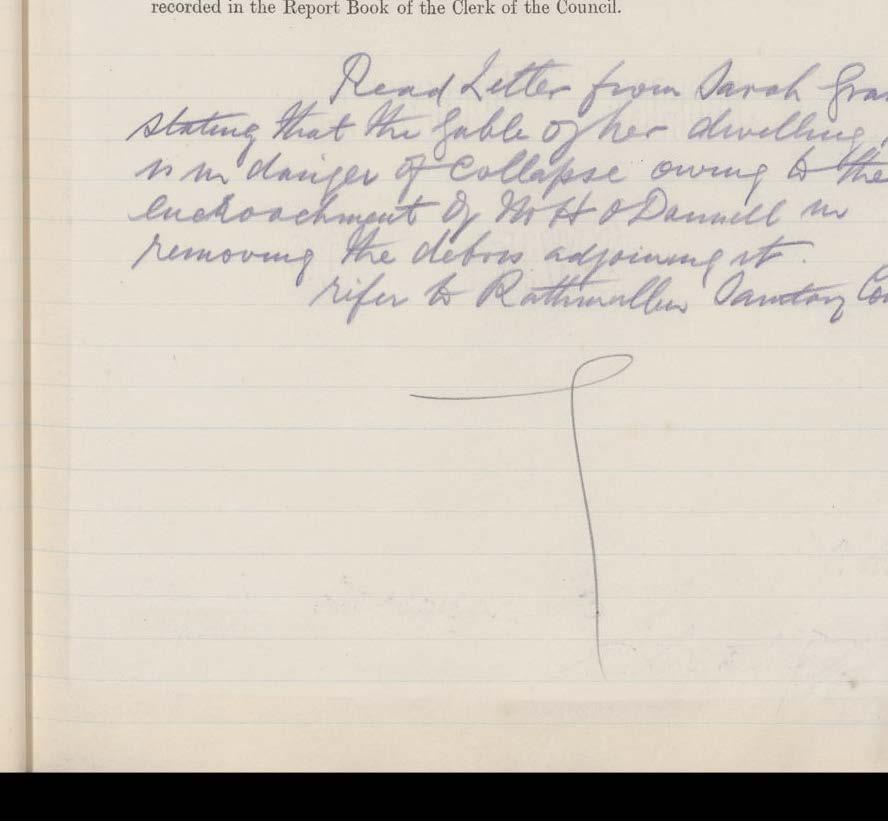 recorded in the Report Book of the Clerk of the Council.
Read Letter from Sarah
stating that the gable of her dwelling
is in danger of Collapse owing to the
encroachment of Mr H O Donnell in
removing the debris adjoining it.
refer to Rathmullen Sanitary